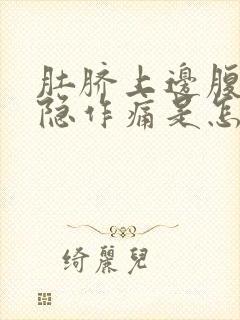 肚脐上邊腹
隐作痛是怎
绮麗兒